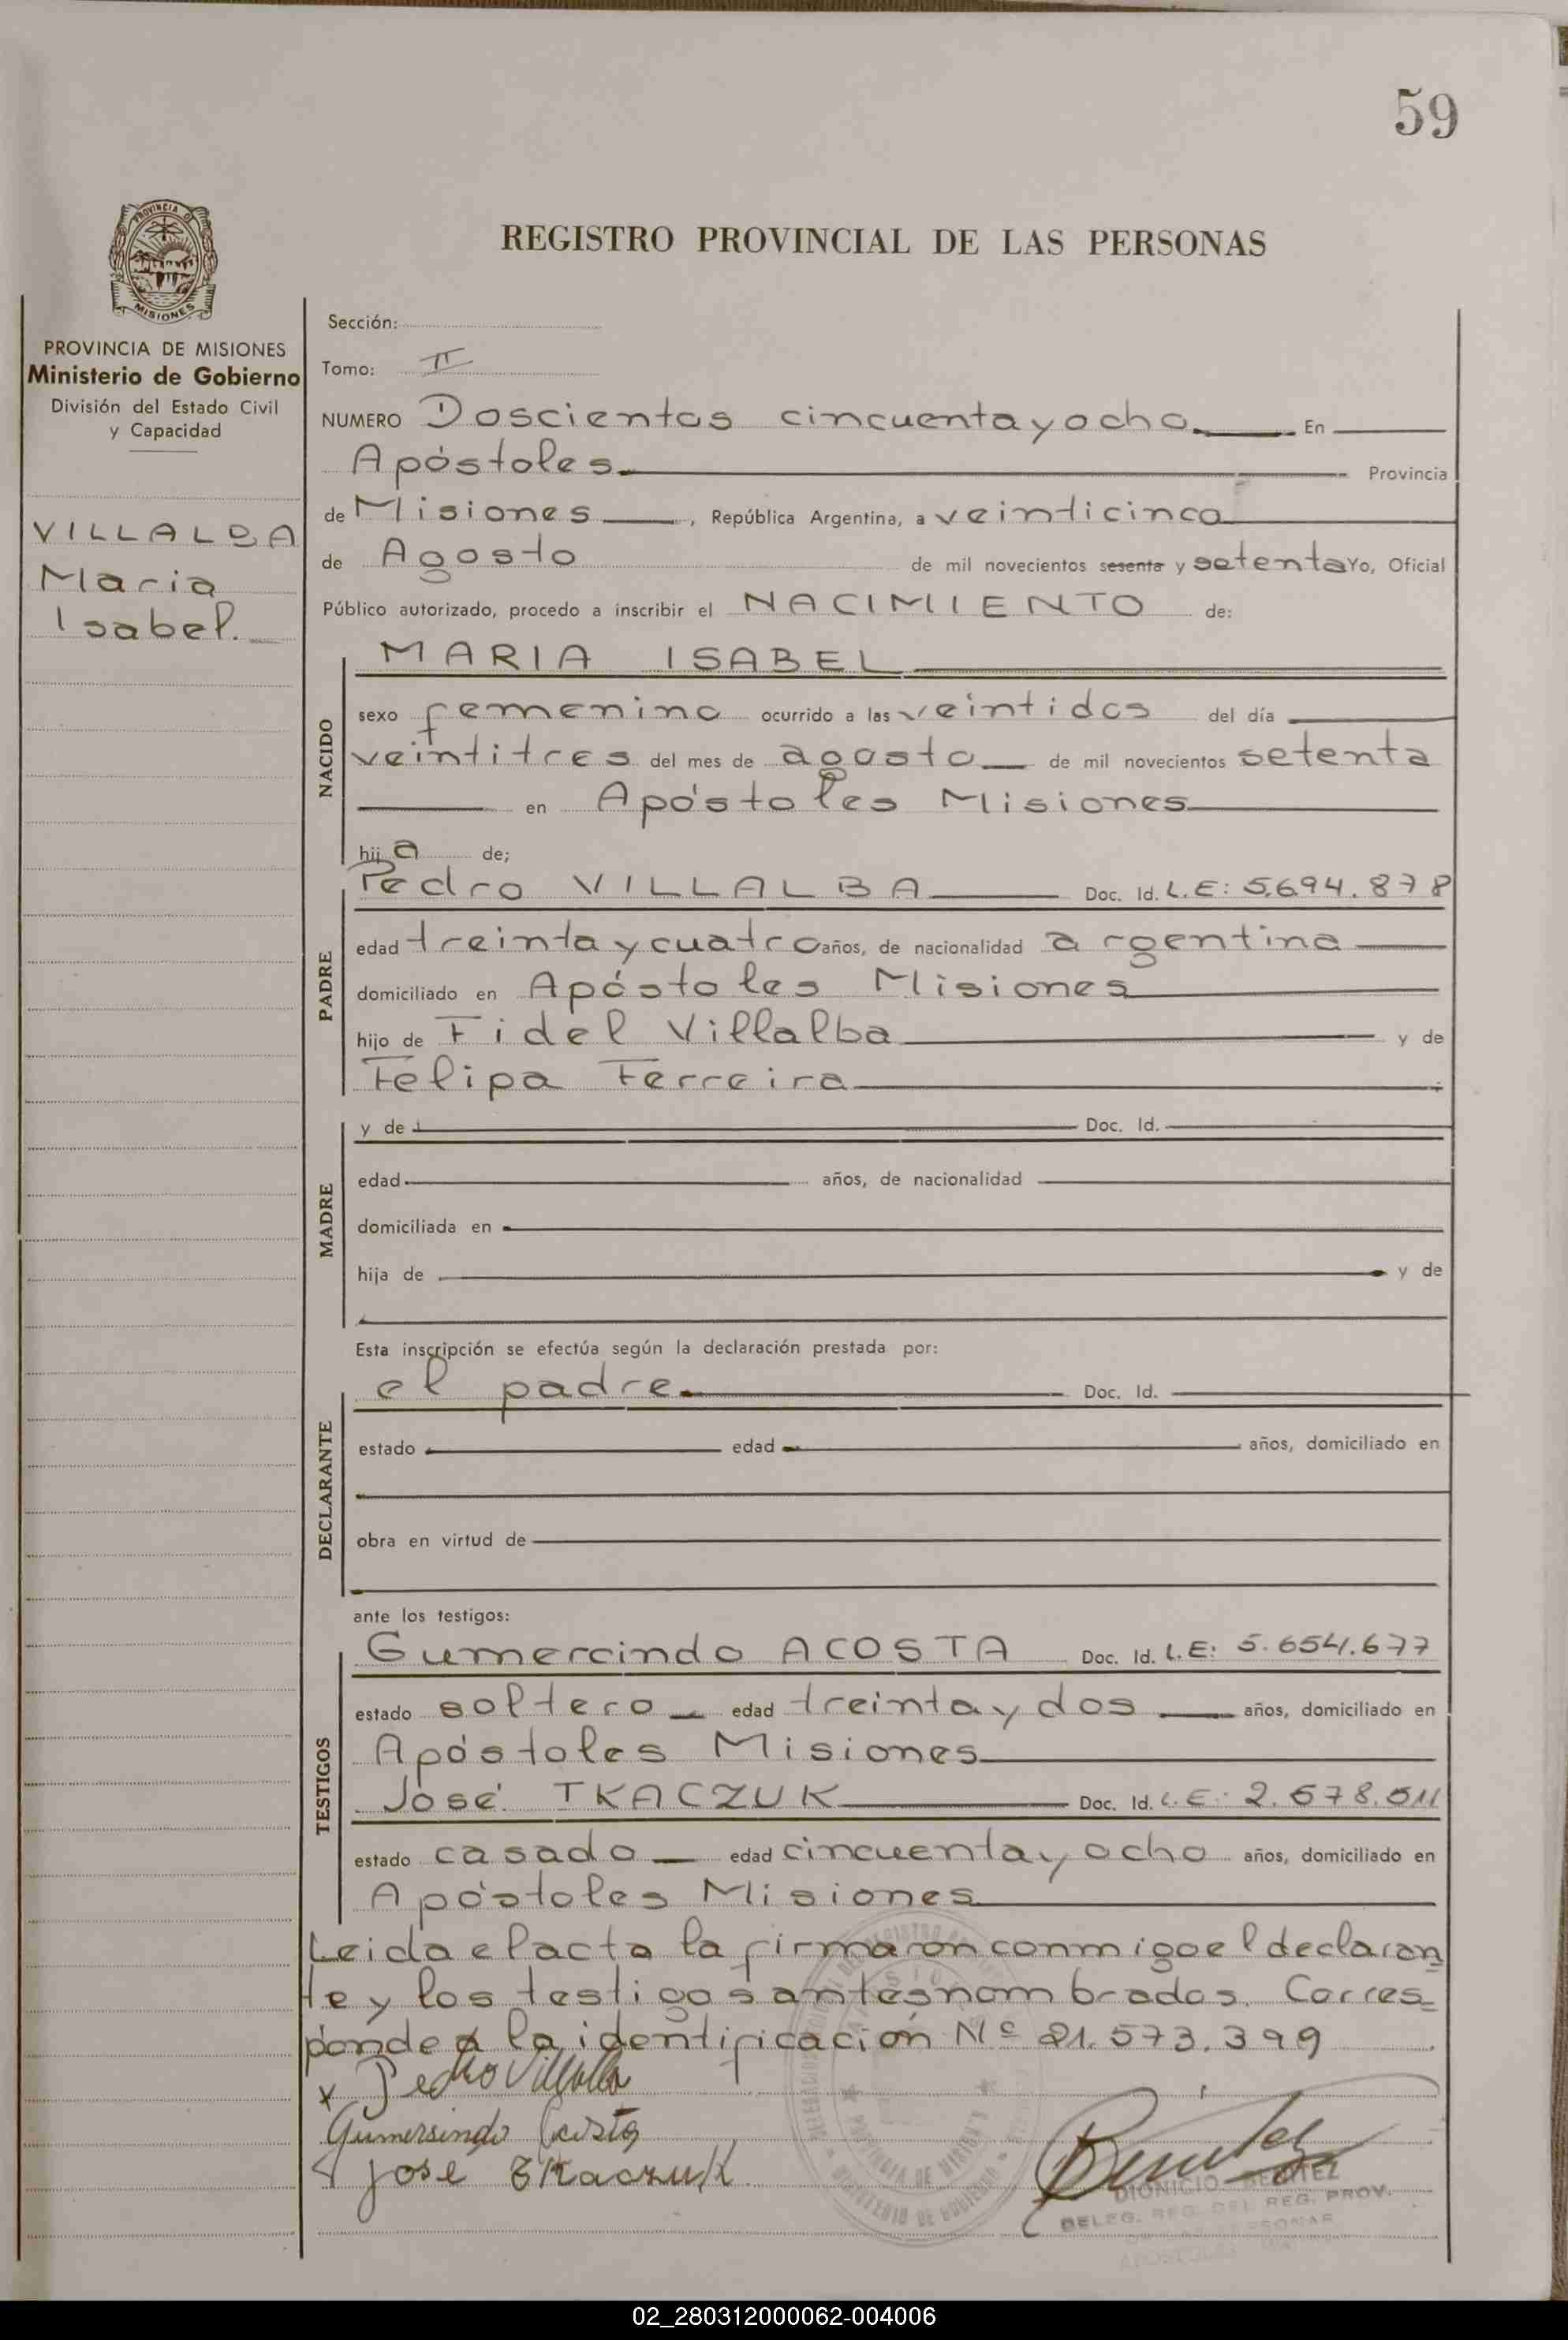 59
PROVINCIA DE
MISIONES
REGISTRO PROVINCIAL DE LAS PERSONAS
PROVINCIA DE MISIONES
Ministerio de Gobierno
División del Estado Civil
y Capacidad
VILLALBA
Maria
Isabel.
Sección:
Tomo: II
NUMERO Doscientos cincuenta y ocho En
Apóstoles Provincia
de Misiones, República Argentina, a veinticinco
de Agosto de mil novecientos sesenta y setenta Yo, Oficial
Público autorizado, procedo a inscribir el NACIMIENTO de:
NACIDO
MARIA ISABEL
sexo femenino ocurrido a las veintidos del día
veintitres del mes de agosto de mil novecientos setenta
en Apóstoles Misiones
hija de;
PADRE
Pedro VILLALBA Doc. Id. L.E: 5.694.878
edad treinta y cuatro años, de nacionalidad argentina
domiciliado en Apóstoles Misiones
hijo de Fidel Villalba y de
Felipa Ferreira
MADRE
y de Doc. Id.
edad años, de nacionalidad
domiciliada en
hija de y de
Esta inscripción se efectúa según la declaración prestada por:
DECLARANTE
el padre Doc. Id.
estado edad años, domiciliado en
obra en virtud de
ante los testigos:
TESTIGOS
Gumercindo ACOSTA Doc. Id. L.E: 5.654.677
estado soltero edad treinta y dos años, domiciliado en
Apóstoles Misiones
José TKACZUK Doc. Id. L.E: 2.578.511
estado casado edad cincuenta y ocho años, domiciliado en
Apóstoles Misiones
Leida el acta la firmaron conmigo el declaran
te y los testigos antes nombrados. Corres=
ponde a la identificación Nº 21.573.399
x Pedro Villalba
Gumersindo Acosta
José TKaczuK
Benitez
DIONICIO BENITEZ
DELEG. REG. DEL REG. PROV.
DE LAS PERSONAS
APOSTOLES
02_280312000062-004006